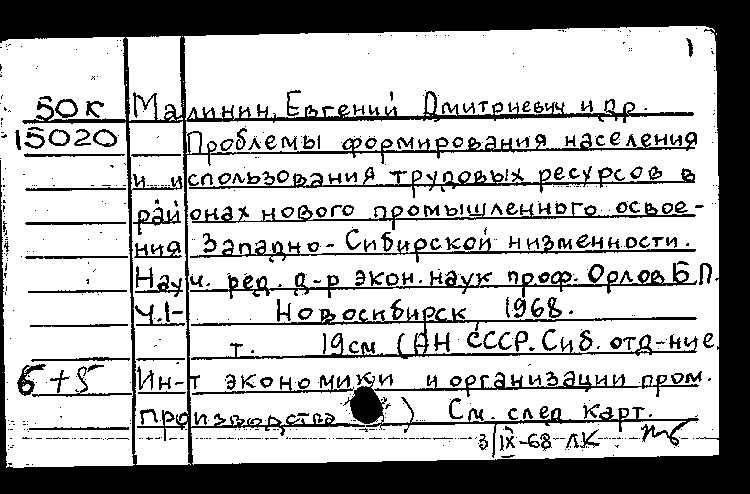 1
50к Малинин, Евгений Дмитриевич и др.
15020 Проблемы формирования населения
и использования трудовых ресурсов в
районах нового промышленного освое-
ния Западно-Сибирской низменности.
Науч. ред. д-р экон. наук проф. Орлов Б.П.
Ч.1- Новосибирск, 1968.
т. 19см (АН СССР. Сиб. отд-ние.
6+5 Ин-т экономики и организации пром.
производства ) См. след карт.
3/IX-68 ЛК